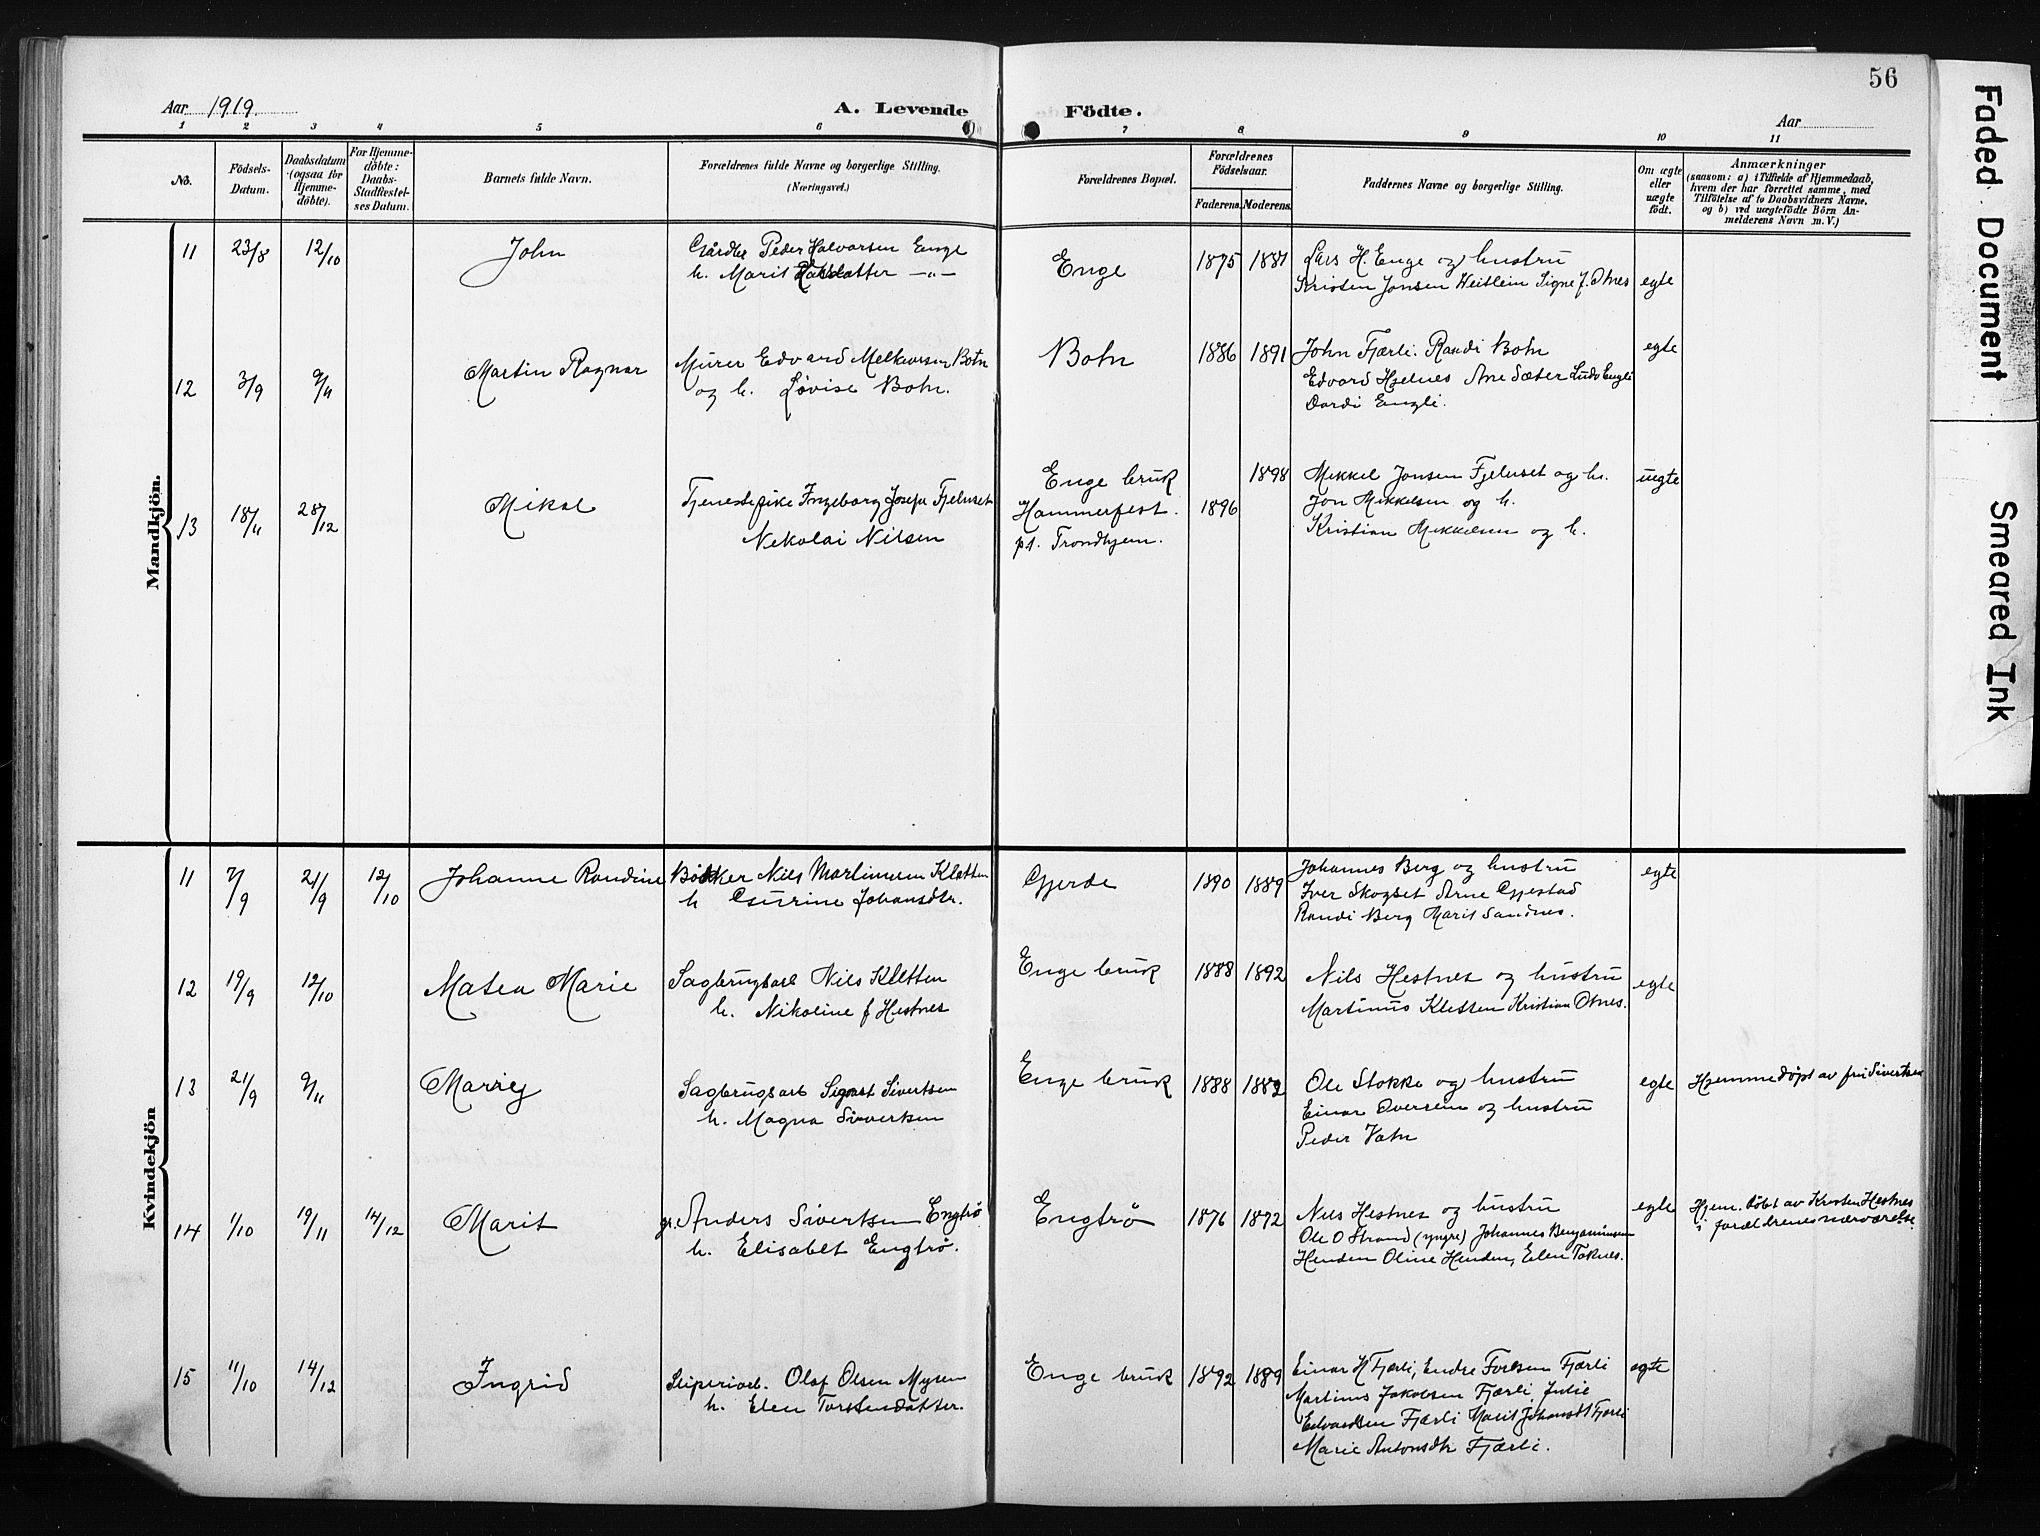 56
Aar 1919.
A. Levende Födte.
Aar
1 2 3 4 5 6 7 8 9 10 11
No.
Födsels-
Datum.
Daabsdatum
(ogsaa for
Hjemme-
döbte).
For Hjemme-
döbte:
Daabs-
Stadfæstel-
ses Datum.
Barnets fulde Navn.
Forældrenes fulde Navne og borgerlige Stilling.
(Næringsvei.)
Forældrenes Bopæl.
Forældrenes
Födselsaar.
Faderens. Moderens.
Faddernes Navne og borgerlige Stilling.
Om ægte
eller
uægte
födt.
Anmærkninger
(saasom: a) i Tilfælde af Hjemmedaab,
hvem der har forrettet samme, med
Tilföielse af to Daabsvidners Navne,
og b) ved uægtefödte Börn An-
melderens Navn m. V.)
Mandkjön.
11 23/8 12/10 John
Gårdbr Peder Halvorsen Enge
h. Marit datter -"-
Enge
1875 1881
Lars H. Enge og hustru
Kristen Jonsen Heitlein Signe f. Otnes
egte
12 3/9 9/11 Martin Ragnar
Murer Edvard Melkiorsen Botn
og h. Lovise Botn.
Botn
1886 1891
John Fjærli. Randi Botn
Edvard Hjelnes Ane Sæter Ludv Engli
Dordi Engli.
egte
13 18/11 28/12 Mikal
Tjenestepike Ingeborg Josefa Fjelnset
Nikolai Nilsen
Enge bruk
Hammerfest.
pt. Trondhjem.
1896 1898
Mikkel Jonsen Fjelnset og h.
Jon Mikkelsen og h.
Kristian Mikkelsen og h.
uegte
Kvindekjön
11 7/9 21/9 12/10 Johanne Randine
Bøkker Nils Martinsen Kletten
h Gurine Johansdtr.
Gjerde
1890 1889
Johannes Berg og hustru
Iver Skogset Arne Gjestad
Randi Berg Marit Sandnes.
egte
12 19/9 12/10 Matea Marie
Sagbrugsarb Nils Kletten
h. Nikoline f Hestnes
Enge bruk
1888 1892
Nils Hestnes og hustru
Martinus Kletten Kristian Otnes.
egte
13 21/9 9/11 Marrej
Sagbrugsarb Sigvart Sivertsen
h. Magna Sivertsen
Enge bruk
1888 1882
Ole Stokke og hustru
Einar Oversen og hustru
Peder Vatn
egte
Hjemmedøpt av fru Sivertsen
14 1/10 19/11 14/12 Marit
gr. Anders Sivertsen Engtrø
h. Elisabet Engtrø.
Engtrø
1876 1872
Nils Hestnes og hustru
Ole O Strand (yngre) Johannes Benjaminsen
Henden Oline Henden, Elen Taknes.
egte
Hjem. døbt av Kristen Hestnes
i forældrenes nærværelse.
15 11/10 14/12 Ingrid
Sliperiarb. Olaf Olsen Myren
h. Elen Torstensdatter.
Enge bruk
1892 1889
Einar H Fjærli, Endre Forlsen Fjærli
Martinus Jakobsen Fjærli, Julie
Edvardsen Fjærli Marit Johansdt Fjærli
Marie Antonsdtr Fjærli.
egte
Faded Document
Smeared Ink